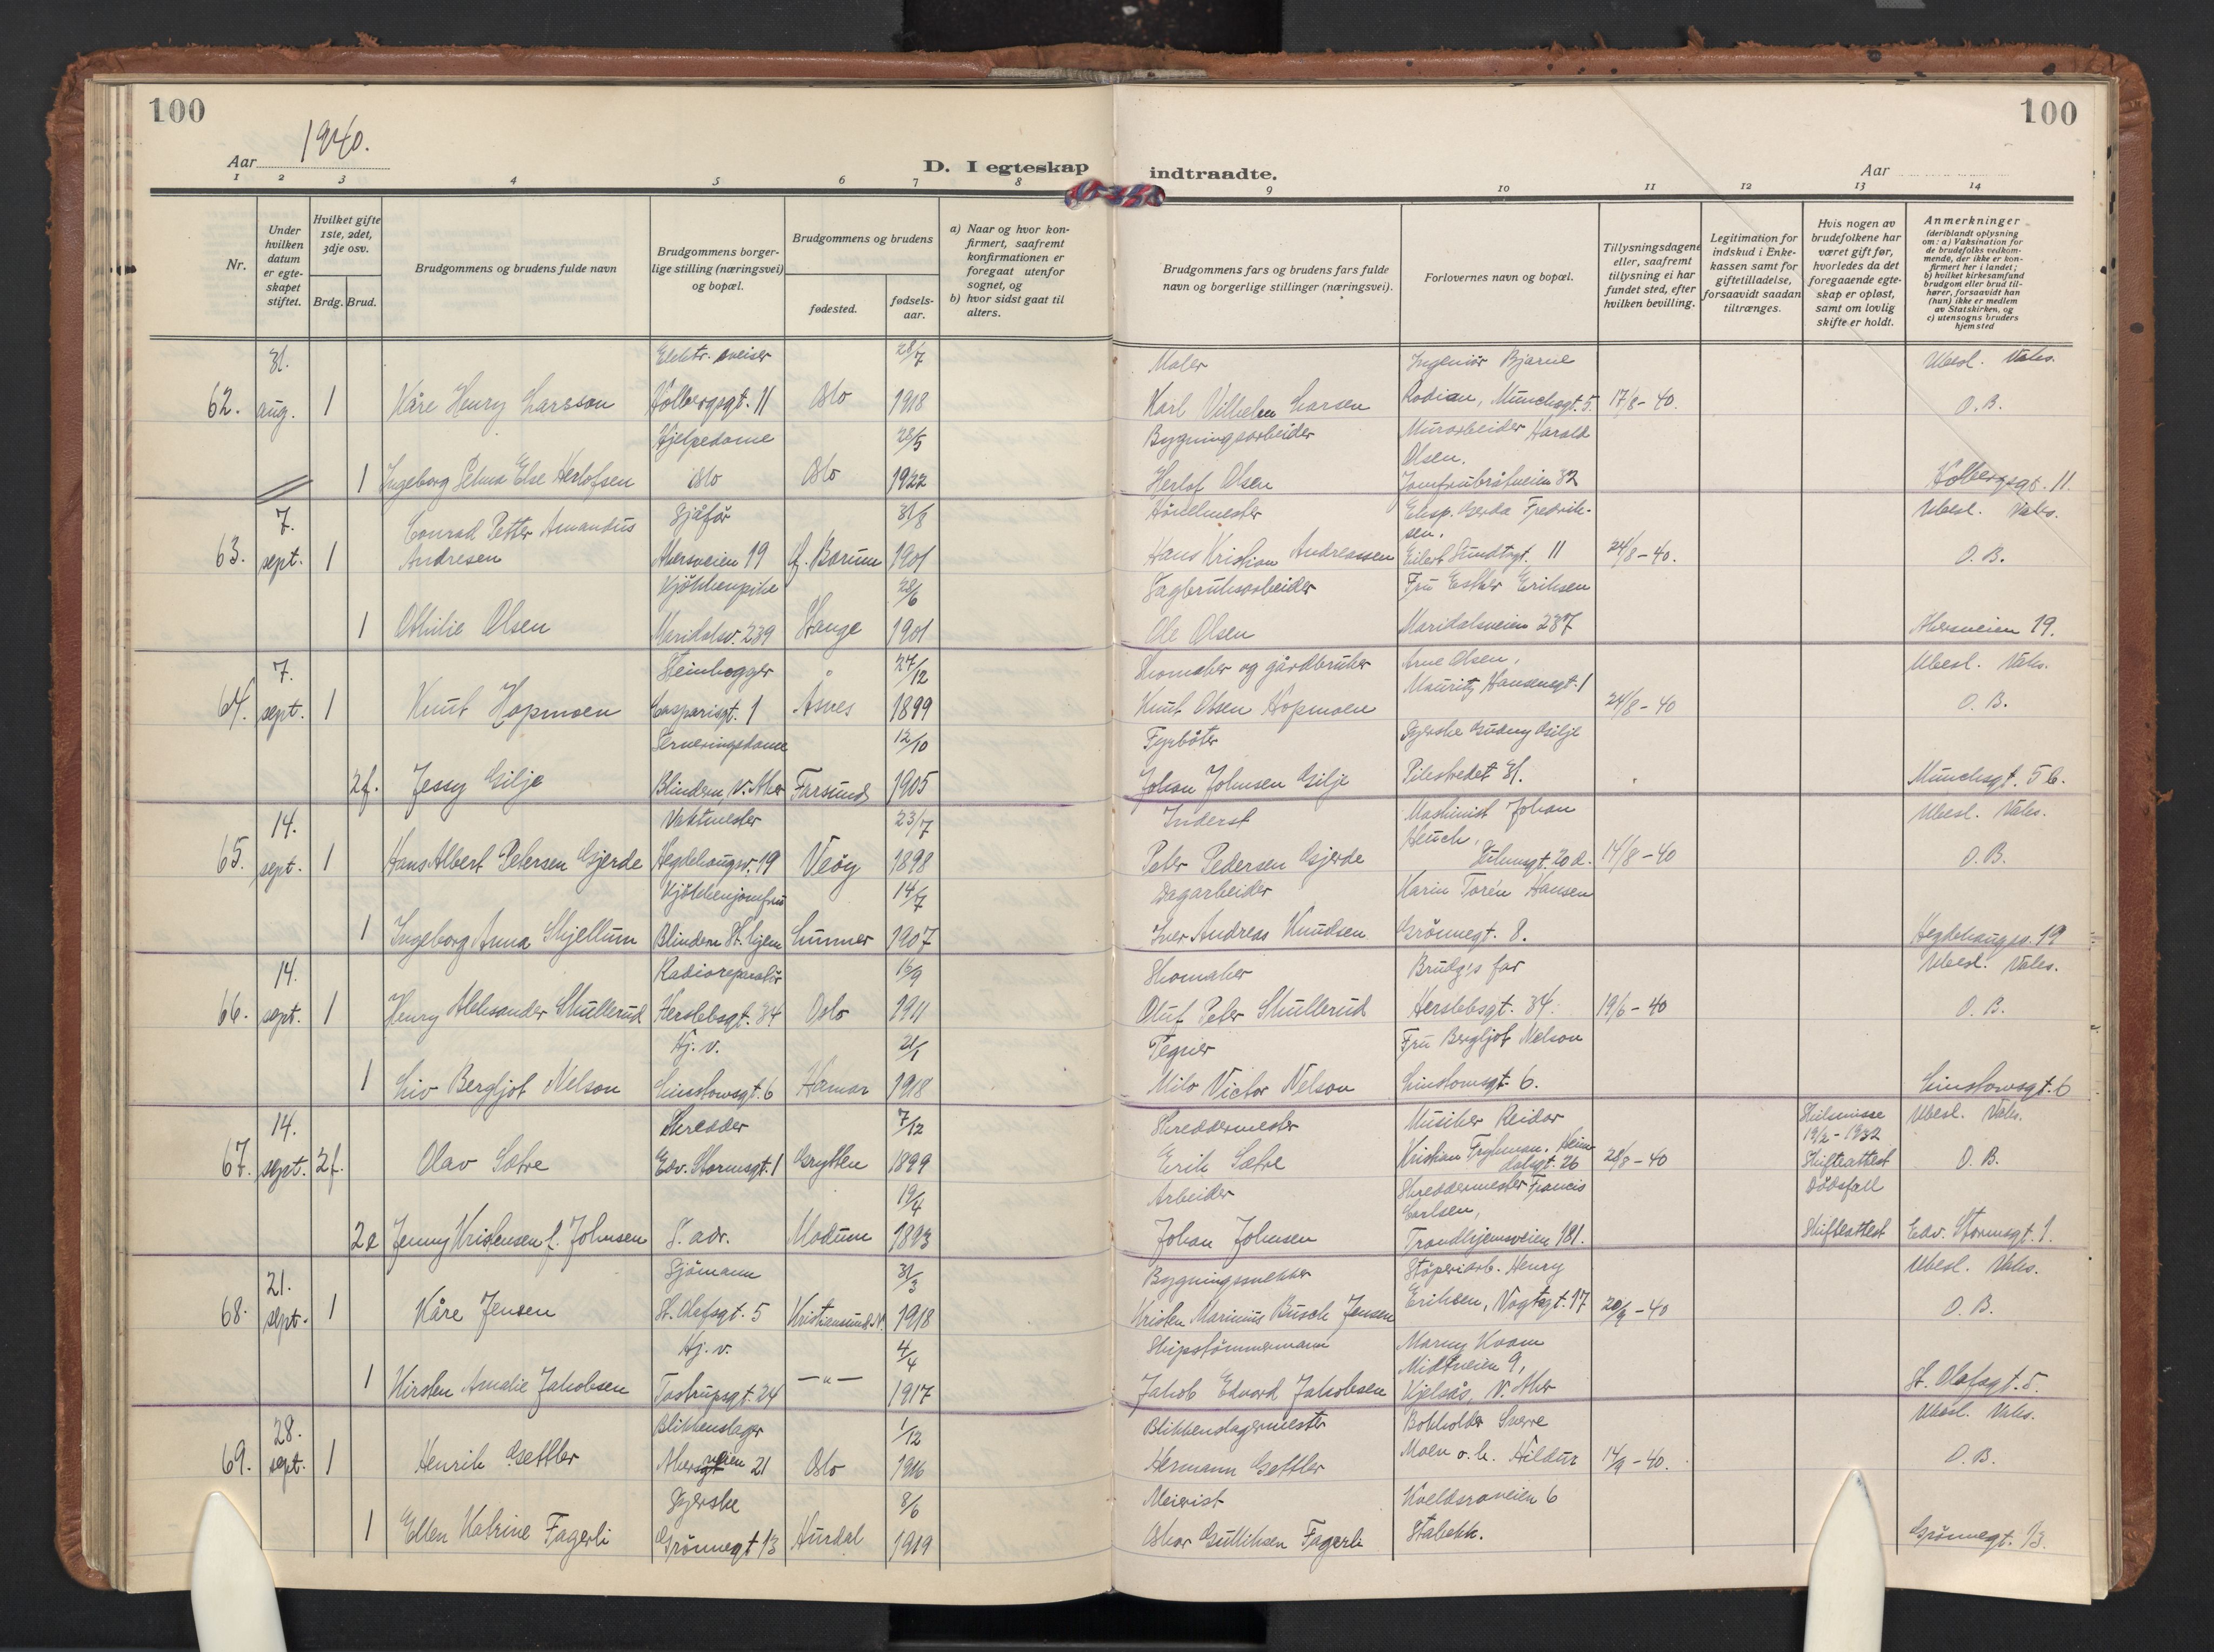 100
100
Aar 1940.
D. I egteskap
indtraadte.
Aar
1 2 3 4 5 6 7 8 9 10 11 12 13 14
Nr.
Under hvilken datum er egteskapet stiftet.
Hvilket gifte 1ste, 2det, 3dje osv.
Brdg. Brud.
Brudgommens og brudens fulde navn
Brudgommens borgerlige stilling (næringsvei) og bopæl.
Brudgommens og brudens
fødested.
fødselsaar.
a) Naar og hvor konfirmert, saafremt konfirmationen er foregaat utenfor sognet, og
b) hvor sidst gaat til alters.
Brudgommens fars og brudens fars fulde navn og borgerlige stillinger (næringsvei).
Forlovernes navn og bopæl.
Tillysningsdagene eller, saafremt tillysning ei har fundet sted, efter hvilken bevilling.
Legitimation for indskud i Enkekassen samt for giftetilladelse, forsaavidt saadan tiltrænges.
Hvis nogen av brudefolkene har været gift før, hvorledes da det foregaaende egteskap er opløst, samt om lovlig skifte er holdt.
Anmerkninger
(deriblandt oplysning om: a) Vaksination for de brudefolks vedkommende, der ikke er konfirmert her i landet; b) hvilket kirkesamfund brudgom eller brud tilhører, forsaavidt han (hun) ikke er medlem av Statskirken, og c) utensogns bruders hjemsted
31. Elektr. sveiser 28/7 Maler Ingeniör Bjarne Ubesl. Vaks.
62. aug. 1 Kåre Henry Larsson Holbergsgt. 11 Oslo 1918 Karl Vilhelm Larsen Rodian, Munchsgt. 5. 17/8-40. O.B.
Hjelpedame 28/5 Bygningsarbeider Murarbeider Harald
Olsen,
1 Ingeborg Selma Else Herlofsen Oslo Oslo 1922 Herlof Olsen Jomfrubråtveien 32 Holbergsgt. 11.
7. Conrad Petter Amandus Sjåfør 31/8 Ubesl. Vaks.
63. sept. 1 Andresen Akersveien 19 Ø. Bærum 1901 Hans Kristian Andreassen Eilert Sundtsgt. 11 24/8-40. O.B.
Kjökkenpike 28/6 Sagbruksarbeider Fru Esther Eriksen
1 Othilie Olsen Maridalsv. 239 Stange 1901 Ole Olsen Maridalsveien 237 Akersveien 19.
7. Steinhogger 27/12 Skomaker og gårdbruker Arne Olsen, Ubesl. Vaks.
Mauritz Hansensgt. 1
64. sept. 1 Knut Hopmoen Casparisgt. 1 Åsnes 1899 Knut Olsen Hopmoen 24/8-40 O.B.
Serveringsdame 12/10 Fyrböter Syerske Gudny Gilje
2f. Jessy Gilje Blindern, V. Aker Farsund 1905 Johan Johnsen Gilje Pilestredet 31. Munchsgt. 5b.
14. Vaktmester 23/7 Inderst Maskinist Johan Ubesl. Vaks.
65. sept. 1 Hans Albert Petersen Gjerde Hegdehaugsv. 19 Veöy 1898 Peter Pedersen Gjerde Heuch, 14/8-40 O.B.
Kjökkenjomfru 14/7 Dagarbeider Karin Torén Hansen
1 Ingeborg Anna Skjellum Blindern St. hjem Lunner 1907 Iver Andreas Knudsen Grönnegt. 8. Hegdehaugsv. 19
14. Radioreparatör Skomaker Brudg's far Ubesl. Vaks.
66. sept. 1 Henry Aleksander Skullerud Herslebsgt. 34 Oslo 1911 Oluf Peter Skullerud Herslebsgt. 34. 19/6-40 O.B.
Hj. v. 21/1 Tegner Fru Bergljot Nelson
1 Liv Bergljot Nelson Linstowsgt. 6 Hamar 1918 Milo Victor Nelson Linstowsgt. 6. Linstowsgt. 6
14. Skredder 7/12 Skreddermester Musiker Reidar Skilsmisse Ubesl. Vaks.
19/2-1932
67. sept. 2f. Olav Sætre Edv. Stormsgt. 1 Grytten 1899 Erik Sætre Kristian Fryhman, Heimdalsgt. 26 28/8-40 Skifteattest O.B.
19/4 Arbeider Skreddermester Francis Dödsfall
Carlsen,
2e Jenny Kristensen f. Johnsen S. adr. Modum 1893 Johan Johnsen Trondhjemsveien 181. Skifteattest Edv. Stormsgt. 1.
21. Sjömann 31/3 Bygningssnekker Stöperiarb. Henry Ubesl. Vaks.
68. sept. 1 Kåre Jensen St. Olafsgt. 5 Kristiansund N. 1918 Kristen Marinius Busch Jensen Eriksen, Vogtsgt. 17 20/9-40 O.B.
Hj. v. 4/4 Skipstömmermann Marny Kvam
Midtveien 9,
1 Kirsten Amalie Jakobsen Tostrupsgt. 24 -"- 1917 Jakob Edvard Jakobsen Kjelsås, V. Aker St. Olafsgt. 5.
28. Blikkenslager 1/12 Blikkenslagermester Bokholder Sverre Ubesl. Vaks.
69. sept. 1 Henrik Gettler Akersveien 21 Oslo 1916 Hermann Gettler Moen o. h. Hildur 14/9-40. O.B.
Syerske 8/6 Meierist Kveldsroveien 6
1 Ellen Katrine Fagerli Grönnegt 13 Hurdal 1919 Oskar Gulliksen Fagerli Stabekk. Grönnegt. 13.